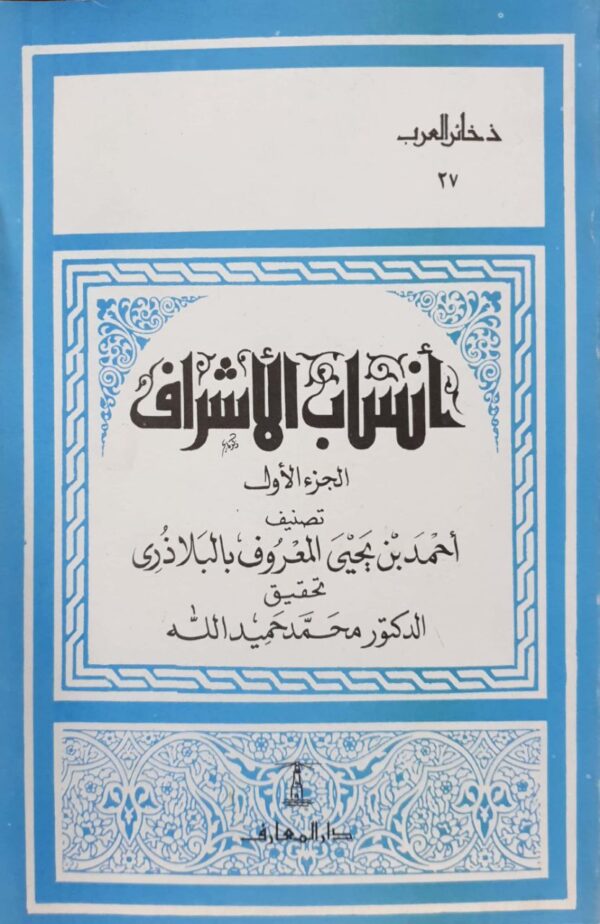 ذخائر العرب
٢٧
أنساب الأشراف
الجزء الأول
تصنيف
أحمَد بْن يَحْيَى المَعْروف بالبَلَاذُرِى
تحقيق
الدكتور محمَّد حَميد الله
دار المعارف